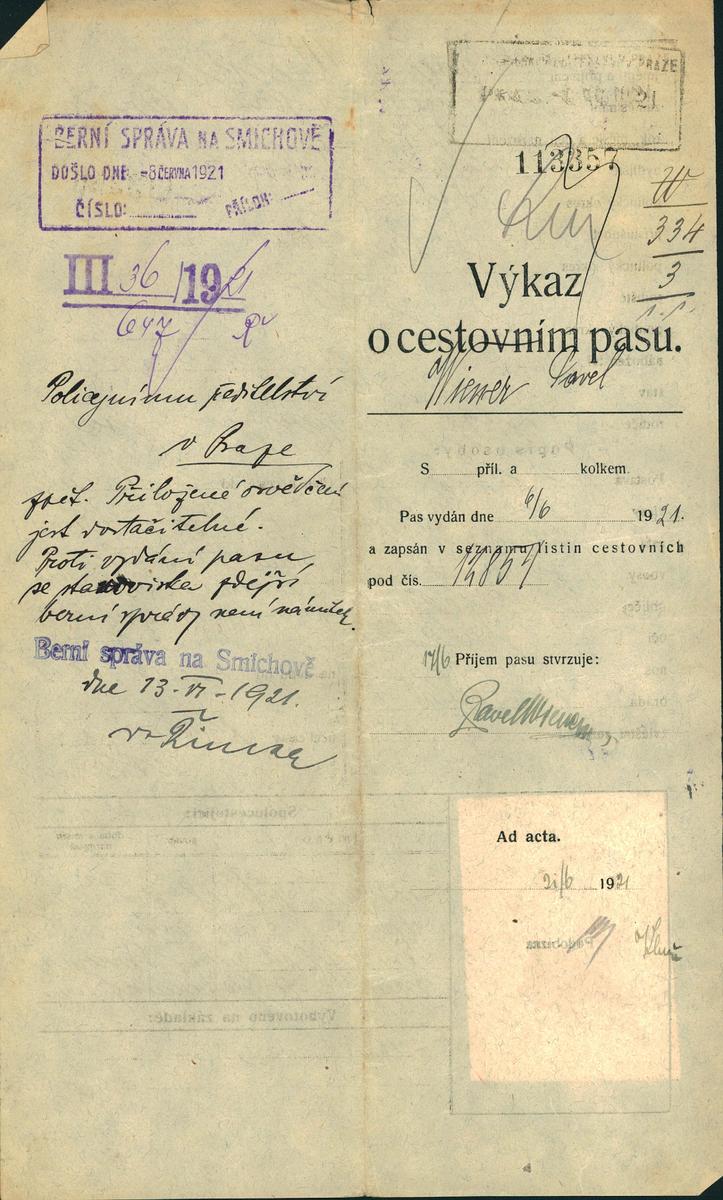 BERNÍ SPRÁVA NA SMÍCHOVĚ
DOŠLO DNE -8 ČERVNA 1921
ČÍSLO: PŘÍLOH:
III 36/1921
647
Policejnímu ředitelství
v Praze
zpět. Přiložené osvědčení
jest dostačitelné.
Proti vydání pasu
se stanoviska zdejší
berní správy není námitek.
Berní správa na Smíchově
dne 13-VI-1921.
113357
W
334
3
Výkaz
o cestovním pasu.
Wiener Pavel
S příl. a kolkem
Pas vydán dne 6/6 1921.
a zapsán v seznamu listin cestovních
pod čís. 12857
17/6 Příjem pasu stvrzuje:
Pavel Wiener
Ad acta.
21/6 1921
Podobizna
Popis osoby:
Spolucestující:
Vyhotoveno na základě: